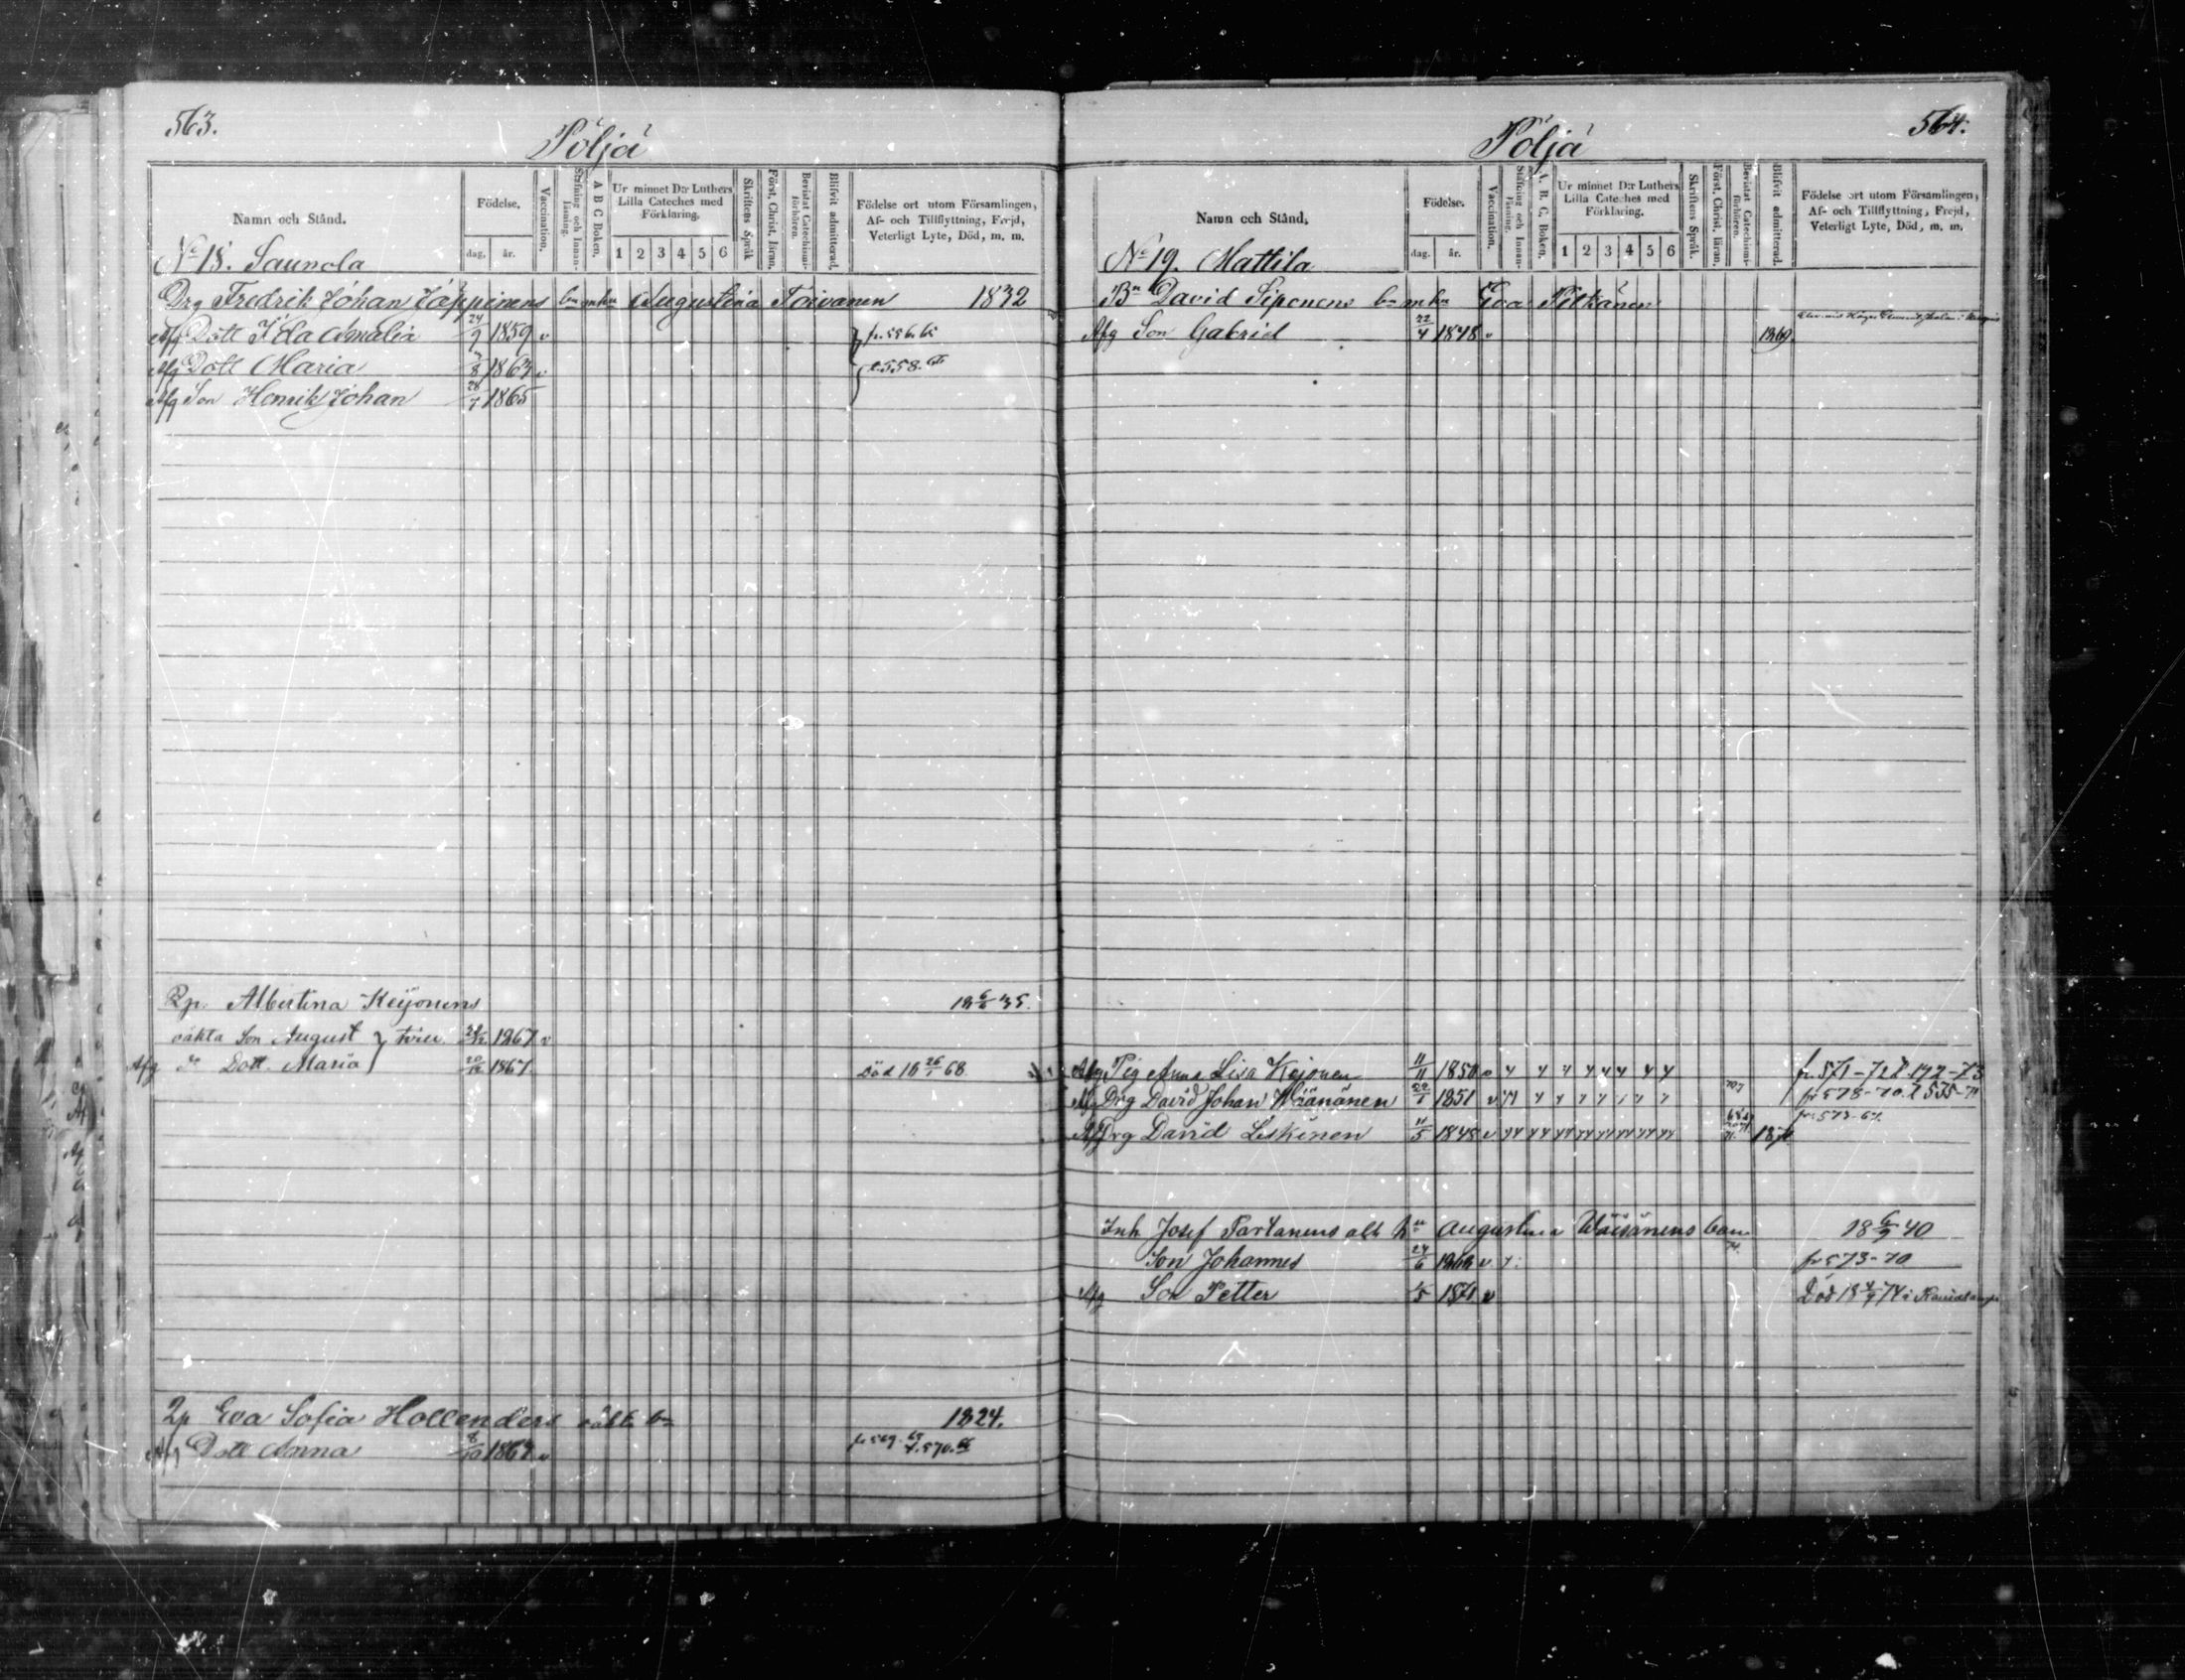 563.
Pöljä
Namn och Stånd.
Födelse,
dag. år.
Vaccination.
Stafning och Innan-läsning.
A B C Boken.
Ur minnet D:r Luthers Lilla Cateches med Förklaring.
1 2 3 4 5 6
Skriftens Språk
Först. Christ. läran.
Bevistat Catechismi-förhören.
Blifvit admitterad.
Födelse ort utom Församlingen, Af- och Tillflyttning, Frejd, Veterligt Lyte, Död, m. m.
No 18. Saunola
Drg Fredrik Johan Jäppinens bn m hu Augustina Toivanen 1832
Afg Dott Ida Amalia 24/9 1859 v fr. 556
Afg Dott Maria /8 1863 v t. 558.
Afg Son Henrik Johan 28/7 1865
Pp. Albertina Keijonens 18 6/6 35.
oäkta Son August } tvill. 1867 v
Afg Do Dott. Maria 20/12 1867. Död 18 26/1 68.
Pp Eva Sofia Hollenders oäkta bn 1824.
Afg Dott Anna 8/10 1864 v fr 569. 65 t. 570. 66
564.
Pöljä
Namn och Stånd,
Födelse.
dag. år.
Vaccination.
Stafning och Innan-läsning.
A. B. C. Boken.
Ur minnet D:r Luthers Lilla Cateches med Förklaring.
1 2 3 4 5 6
Skriftens Språk.
Först. Christ. läran.
Bevistat Catechismi-förhören.
Blifvit admitterad.
Födelse ort utom Församlingen, Af- och Tillflyttning, Frejd, Veterligt Lyte, Död, m. m.
No 19. Mattila
Bn David Siponens bn m hu Eva Pitkänen
Afg Son Gabriel 22/4 1848 v 1869.
Afg Pig Anna Lisa Kejonen 11/11 1850 v fr. 571-71
Afg Drg David Johan Väänänen 22/1 1851 v fr 578-70. t 535-71
Afg Drg David Leskinen 11/5 1848 v fr 573-67.
Inh. Josef Partanens o aflh hu Augustina Väisänens barn 18 6/9 40
Son Johannes 24/6 1869 v fr 573-70
Afg Son Petter /5 1871 v Död 18 4/7 74 i